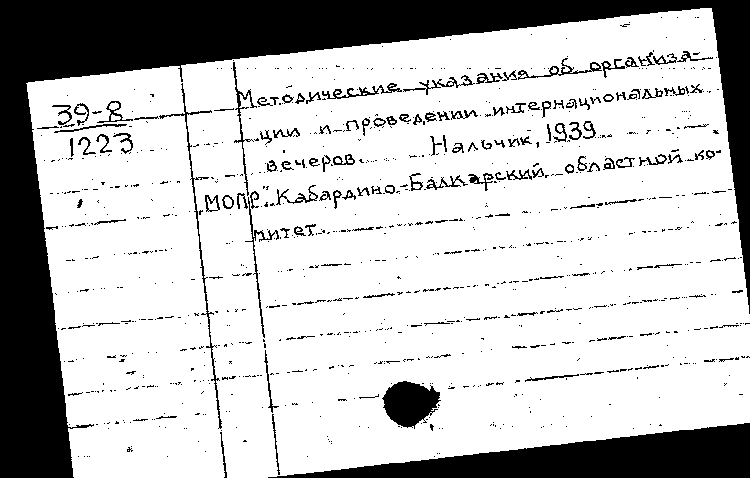 39-8
1223
Методические указания об организа-
ции и проведении интернациональных
вечеров. Нальчик, 1939
„МОПР". Кабардино-Балкарский областной ко-
митет.